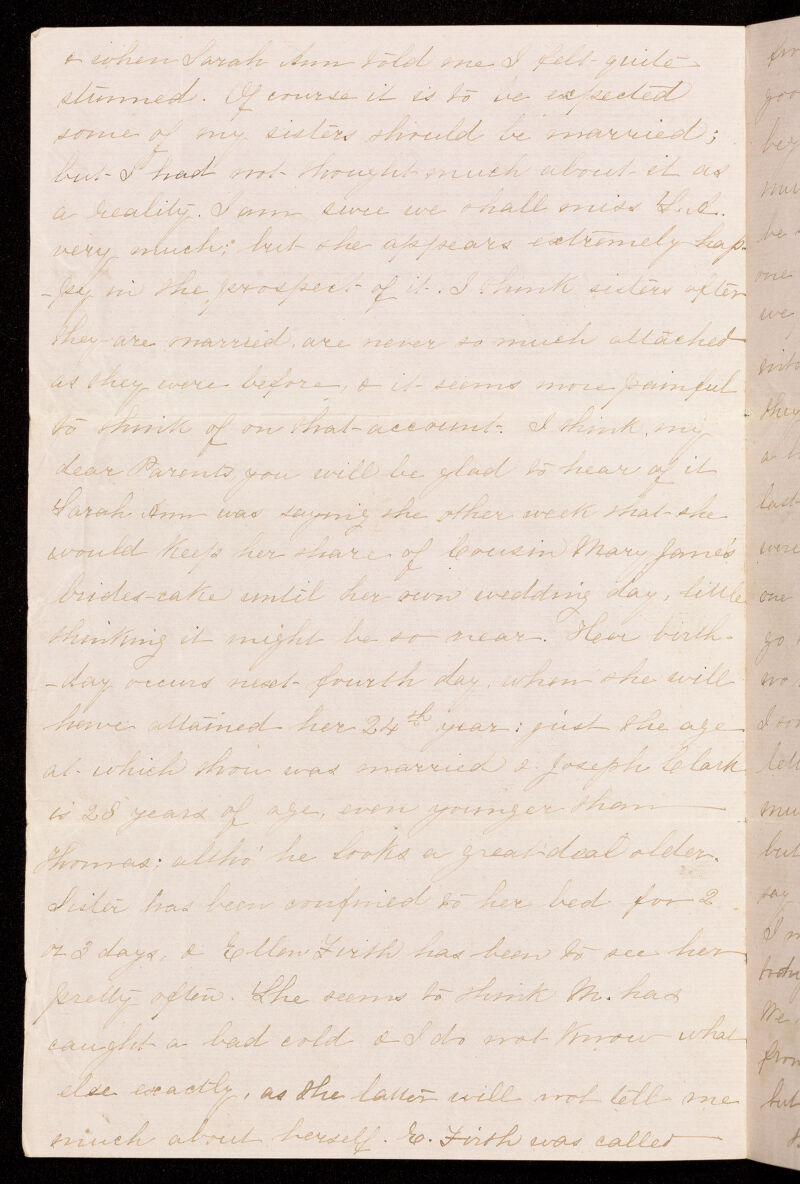 & when Sarah Ann told me I felt quite
stunned. Of course it is to be expected
some of my sisters should be married;
but I had not thought much about it as
a reality. I am sure we shall miss S.A.
very much; but she appears extremely hap-
-py in the prospect of it. I think sisters after
they are married, are never so much attached
as they were before, & it seems more painful
to think of on that account. I think, my
dear Parents you will be glad to hear of it
Sarah Ann was saying the other week that she
would keep her share of Cousin Mary Jane's
brides-cake until her own wedding day, little
thinking it might be so near. Her birth-
-day occurs next fourth day, when she will
have attained her 24th year; just the age
at which thou was married & Joseph Clark
is 28 years of age, even younger than
Thomas; altho' he looks a great deal older.
Sister has been confined to her bed for 2
or 3 days, & Ellen Firth has been to see her
pretty often. She seems to think M. has
caught a bad cold & I do not know what
else exactly, as the latter will not tell me
much about herself. E. Firth was called